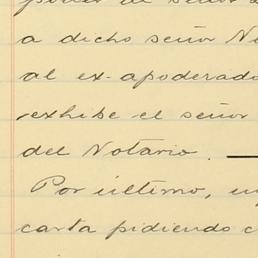 poder de señor
a dicho señor
al ex-apoderado
exhibe el señor
del Notario.
Por último,
carta pidiendo